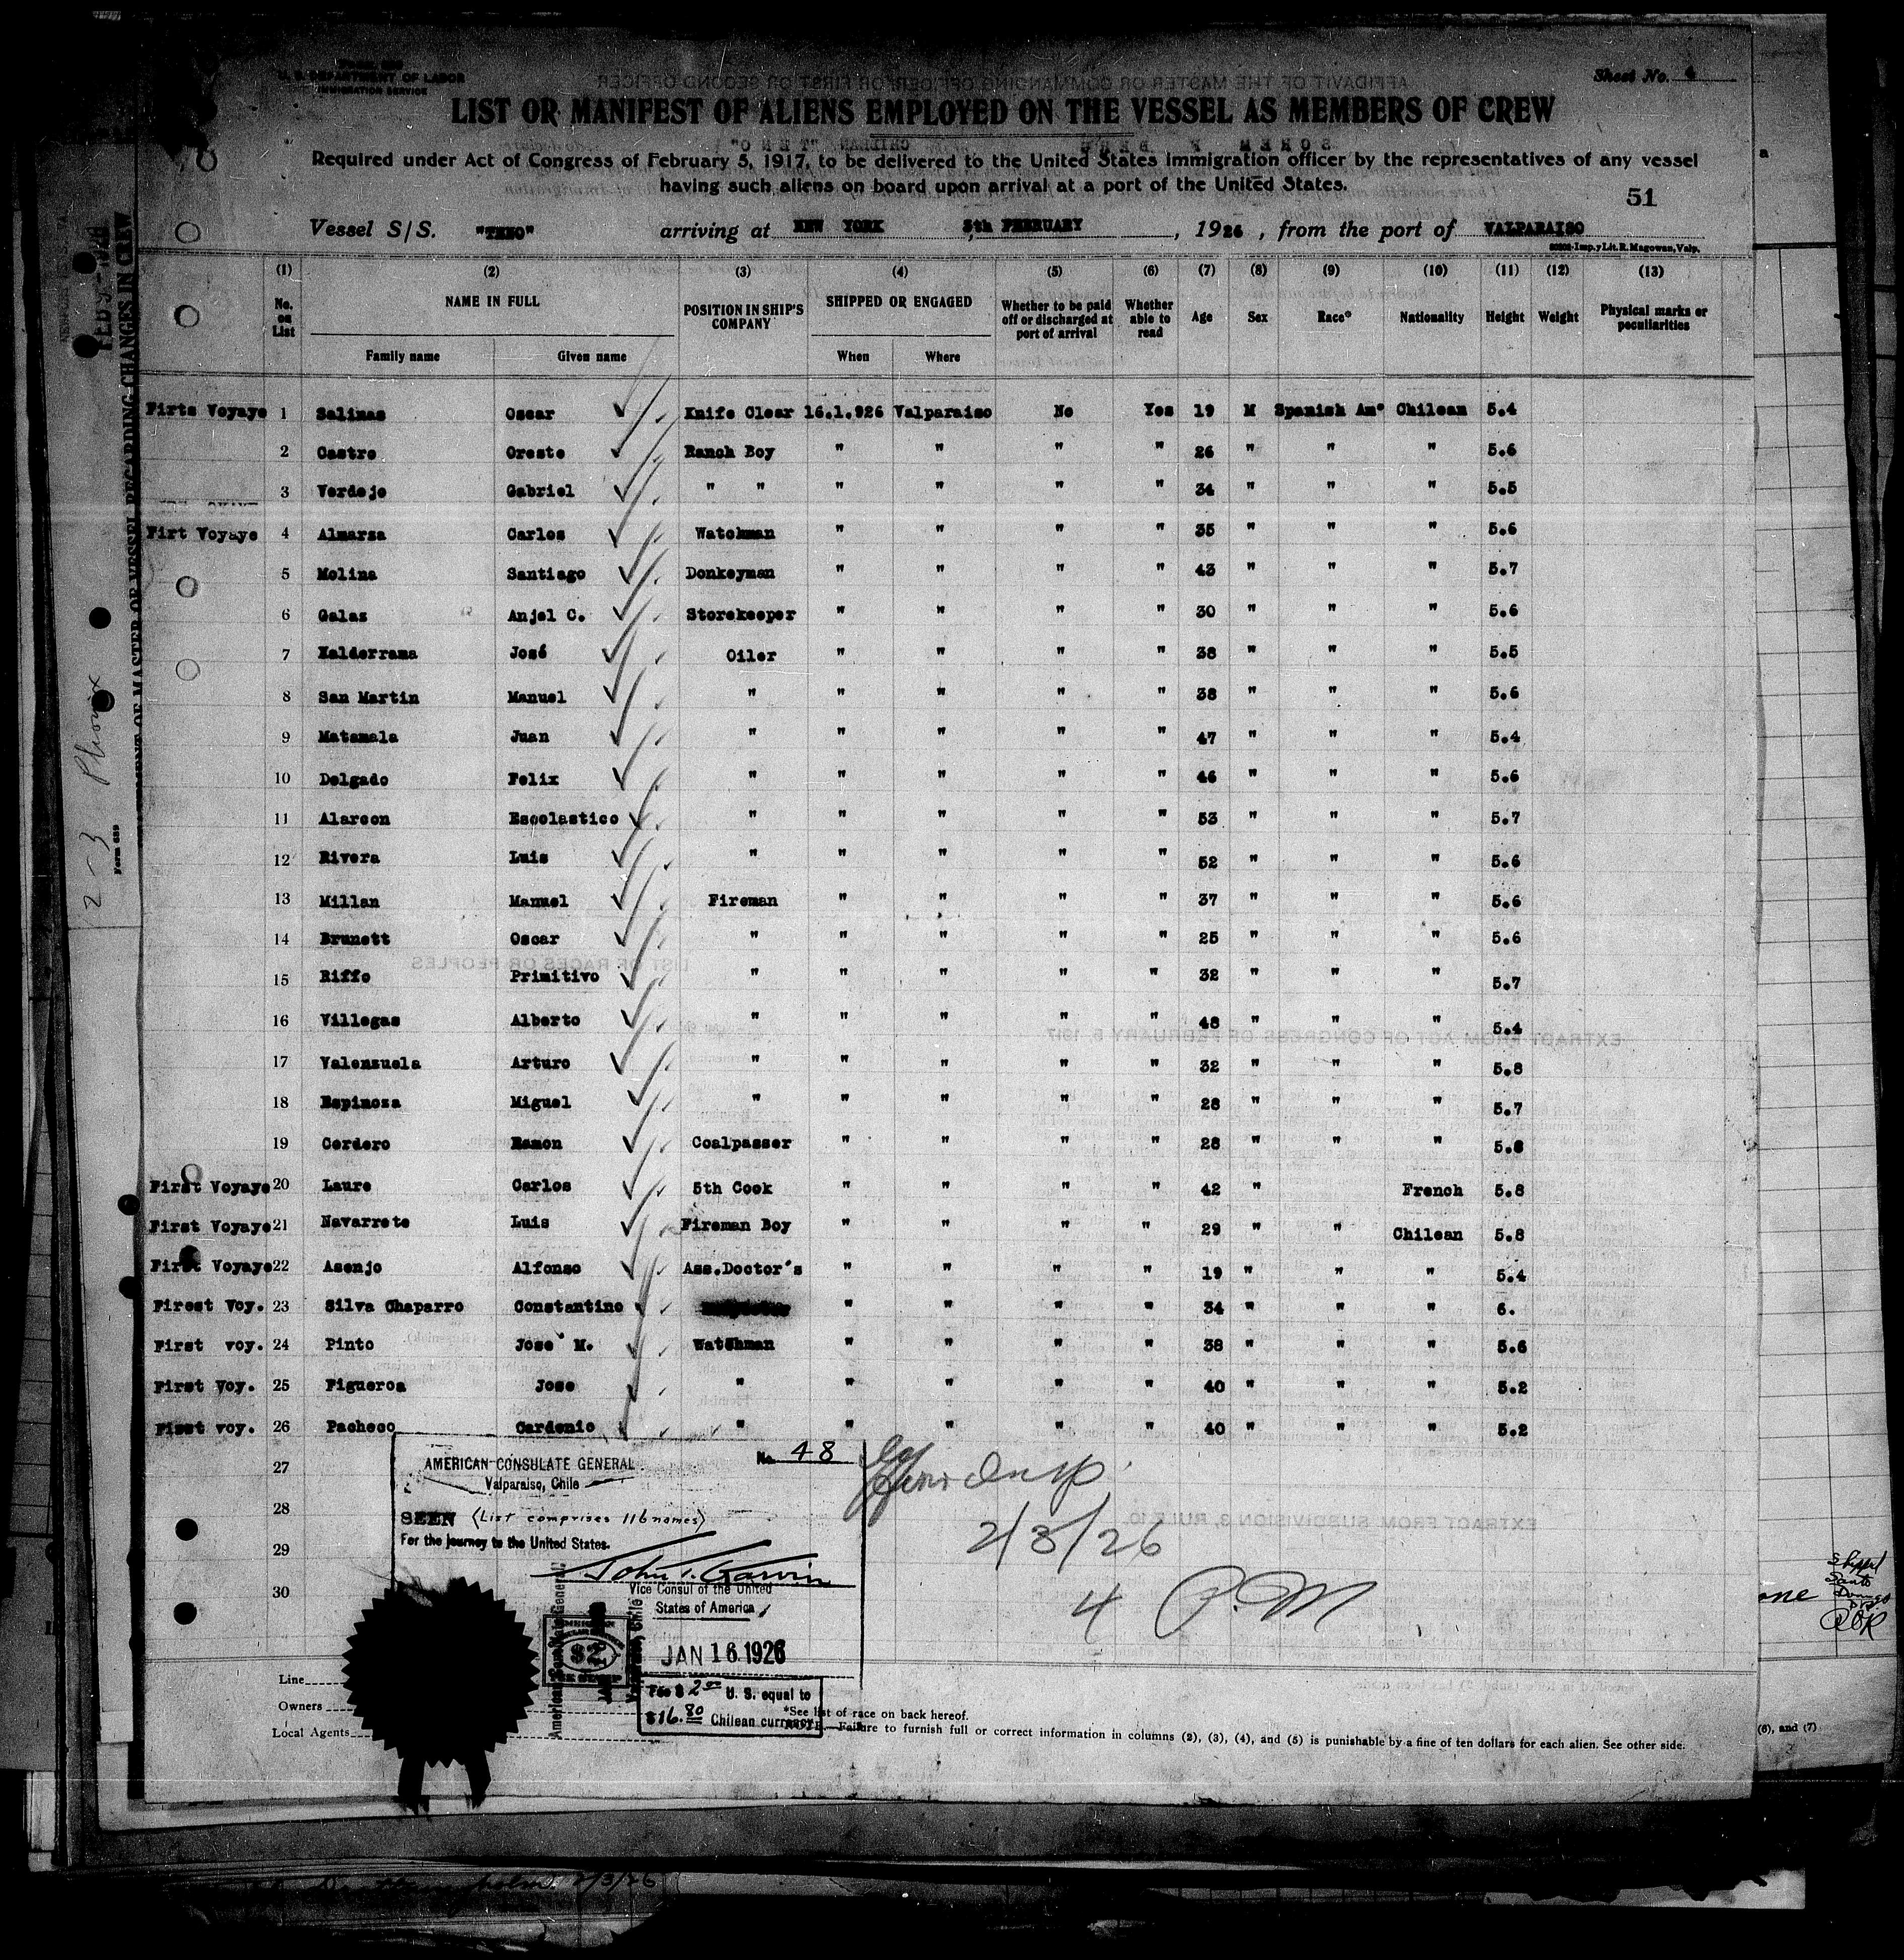 U. S. DEPARTMENT OF LABOR
IMMIGRATION SERVICE
Sheet No. 4
LIST OR MANIFEST OF ALIENS EMPLOYED ON THE VESSEL AS MEMBERS OF CREW
Required under Act of Congress of February 5, 1917, to be delivered to the United States immigration officer by the representatives of any vessel
having such aliens on board upon arrival at a port of the United States.
51
Vessel S/S. "TENO" arriving at NEW YORK 5th FEBRUARY, 1926, from the port of VALPARAISO
Imp. y Lit. R. Magowan, Valp.
(1) (2) (3) (4) (5) (6) (7) (8) (9) (10) (11) (12) (13)
No. on List NAME IN FULL POSITION IN SHIP'S COMPANY SHIPPED OR ENGAGED Whether to be paid off or discharged at port of arrival Whether able to read Age Sex Race* Nationality Height Weight Physical marks or peculiarities
Family name Given name When Where
Firts Voyaye 1 Salinas Oscar Knife Clear 16.1.926 Valparaiso No Yes 19 M Spanish Amº Chilean 5.4
2 Castro Oreste Ranch Boy " " " " 26 " " " 5.6
3 Verdejo Gabriel " " " " " " 34 " " " 5.5
Firt Voyaye 4 Almarza Carlos Watchman " " " " 35 " " " 5.6
5 Molina Santiago Donkeyman " " " " 43 " " " 5.7
6 Galaz Anjel C. Storekeeper " " " " 30 " " " 5.6
7 Balderrama José Oiler " " " " 38 " " " 5.5
8 San Martin Manuel " " " " " 38 " " " 5.6
9 Matamala Juan " " " " " 47 " " " 5.4
10 Delgado Felix " " " " " 46 " " " 5.6
11 Alarcon Escolastico " " " " " 53 " " " 5.7
12 Rivera Luis " " " " " 52 " " " 5.6
13 Millan Manuel Fireman " " " " 37 " " " 5.6
14 Brunett Oscar " " " " " 25 " " " 5.6
15 Riffo Primitivo " " " " " 32 " " " 5.7
16 Villegas Alberto " " " " " 48 " " " 5.4
17 Valenzuela Arturo " " " " " 32 " " " 5.8
18 Espinoza Miguel " " " " " 28 " " " 5.7
19 Cordero Ramon Coalpasser " " " " 28 " " " 5.8
First Voyaye 20 Laure Carlos 5th Cook " " " " 42 " French 5.8
First Voyaye 21 Navarrete Luis Fireman Boy " " " " 29 " " Chilean 5.8
First Voyaye 22 Asenjo Alfonso Ass.Doctor's " " " " 19 " " " 5.4
Firest Voy. 23 Silva Chaparro Constantino " " " " 34 " " " 6.
First voy. 24 Pinto Jose M. Watchman " " " " 38 " " " 5.6
First Voy. 25 Figueroa Jose " " " " " 40 " " " 5.2
First voy. 26 Pacheco Cardenio " " " " " 40 " " " 5.2
27
28
29
30
AMERICAN CONSULATE GENERAL
Valparaiso, Chile
No. 48
SEEN (List comprises 116 names)
For the journey to the United States.
John T. Garvin
Vice Consul of the United
States of America
JAN 16 1926
$2
Fee $ 2.00 U. S. equal to
$16.80 Chilean currency
2/3/26
4 P.M
Line
Owners
Local Agents
*See list of race on back hereof.
NOTE.—Failure to furnish full or correct information in columns (2), (3), (4), and (5) is punishable by a fine of ten dollars for each alien. See other side.
(6), and (7)
2-3 Phoenix
Form 689